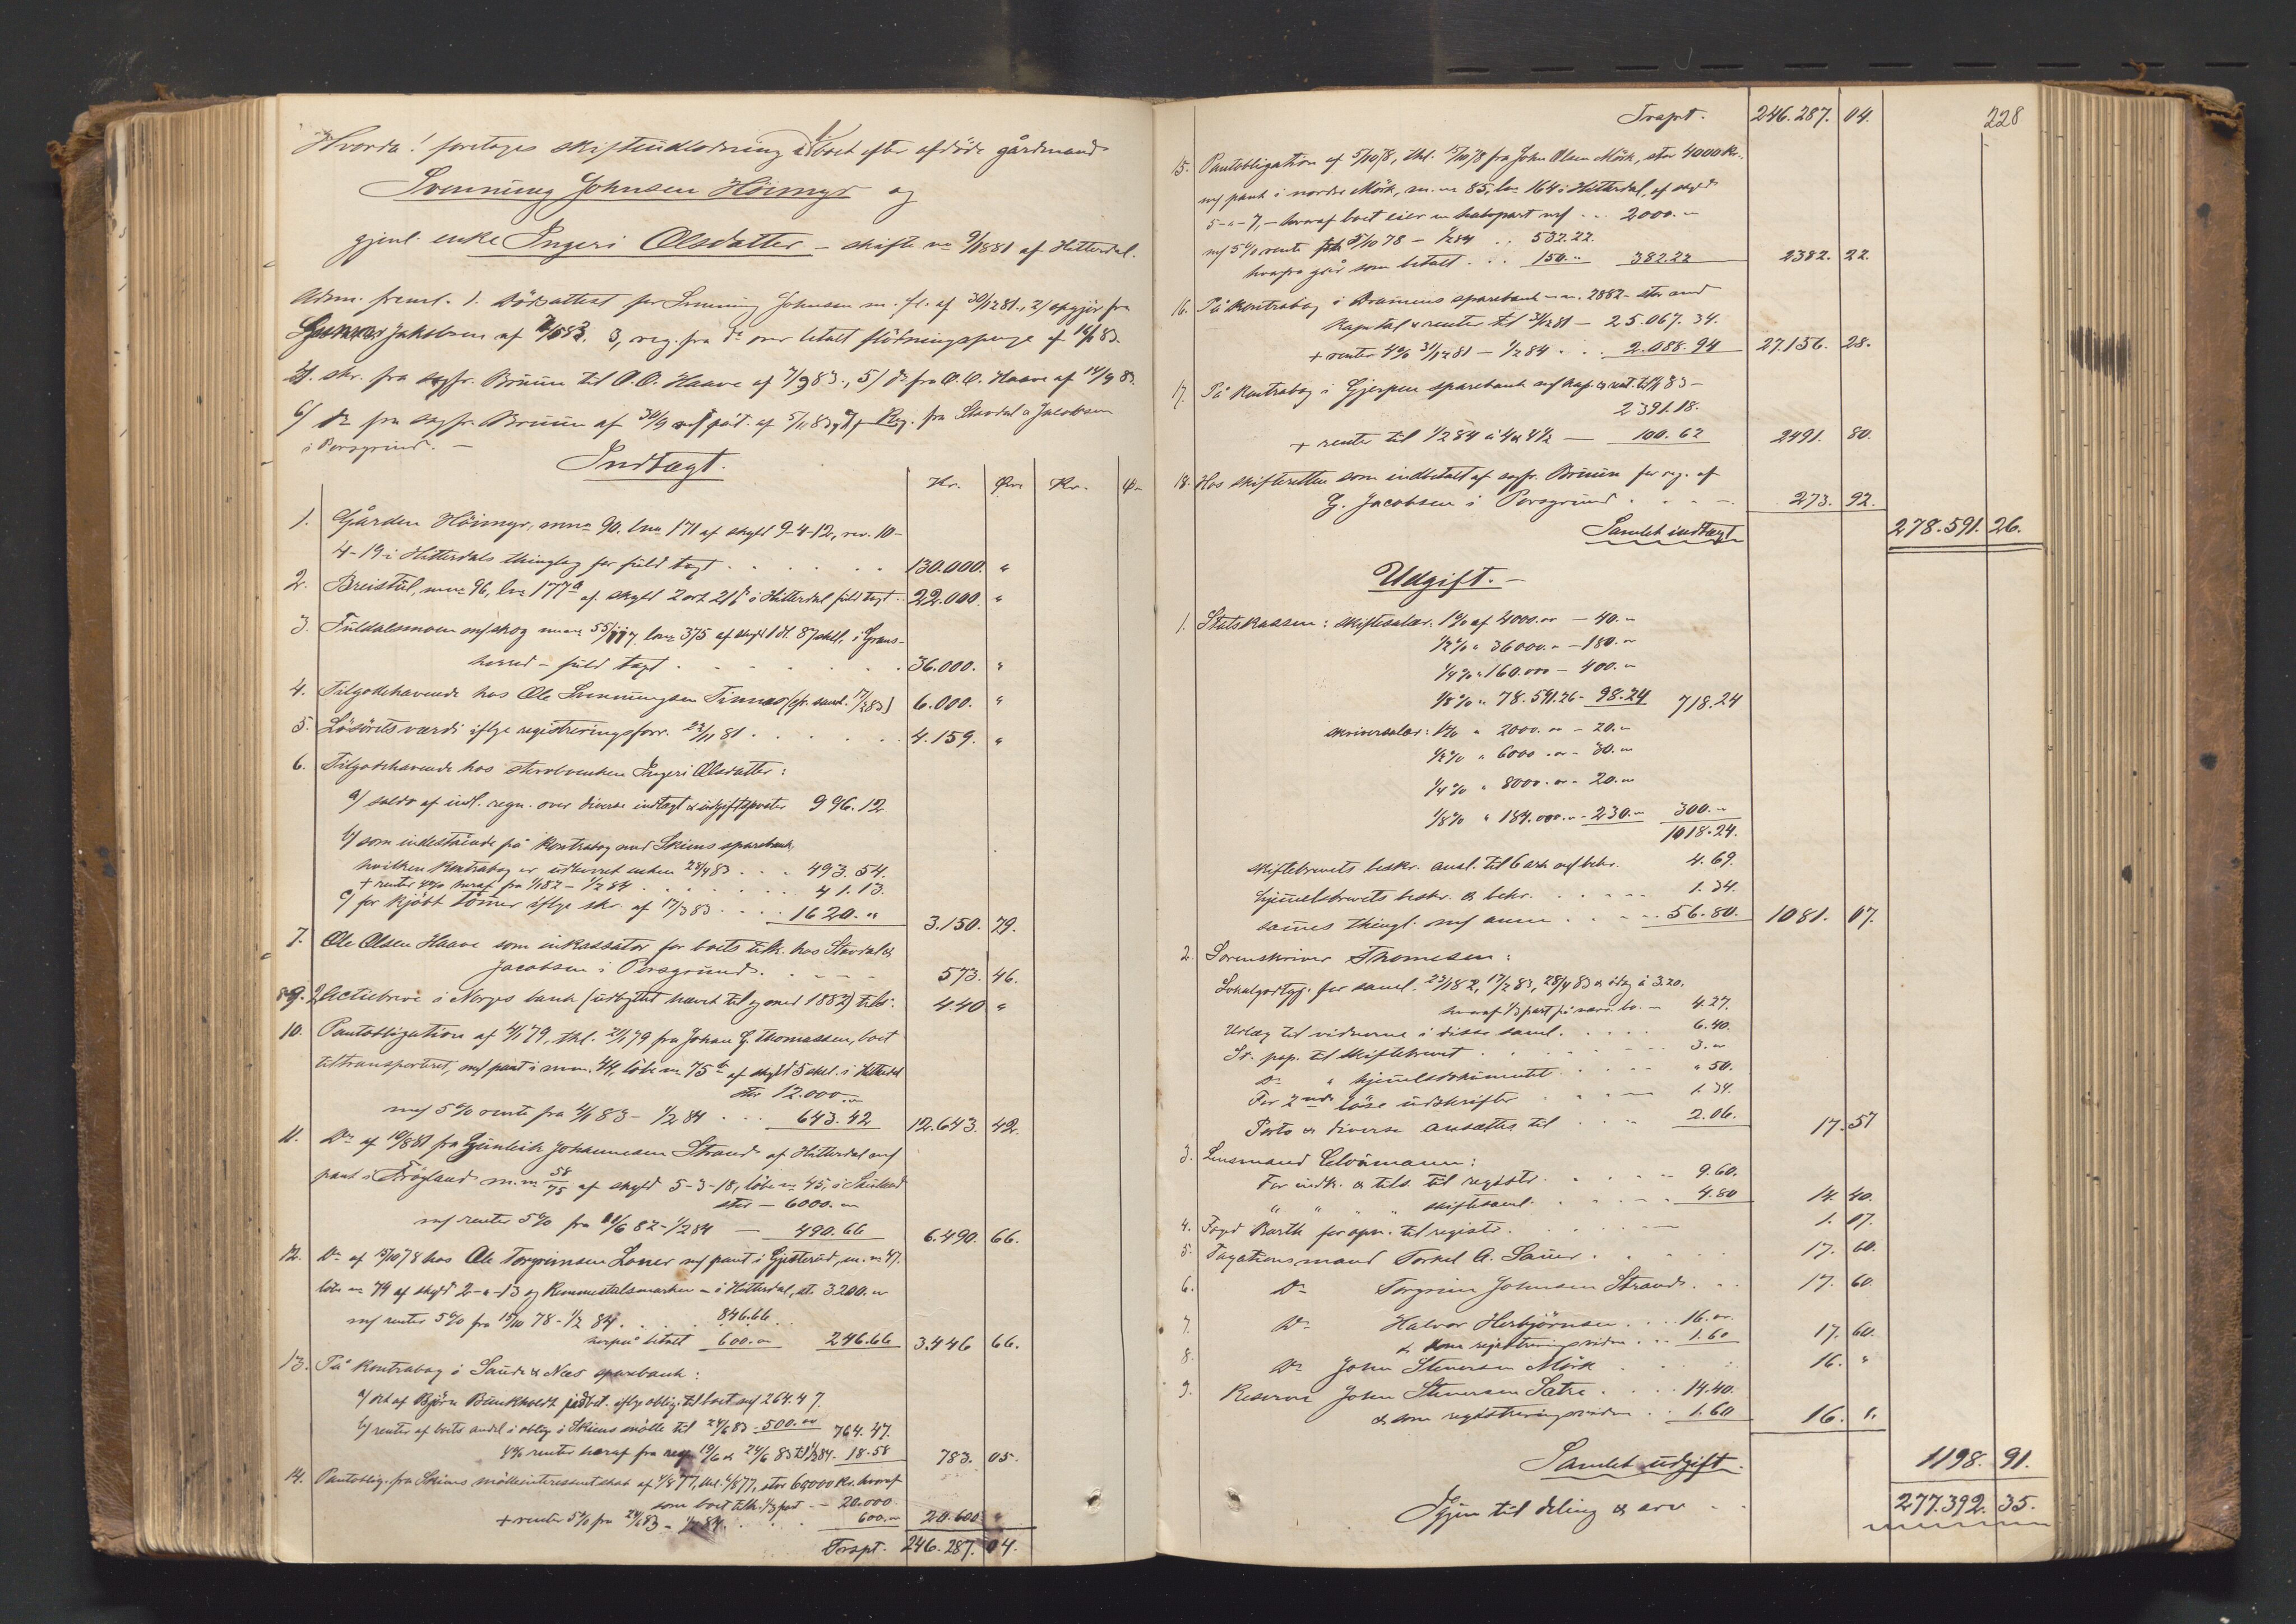 Hvorda! foretoges skifteudlodning i boet efter afdöde gårdmand
Svenning Johnsen Höimyr og
gjenl. enke Ingeri Olsdatter – skifte no 9/1881 af Hitterdal.
Adm. freml. 1. Dödsattest for Svenning Johnsen m. fl. af 30/12 81, 2/ opgjör fra
Gunnar Jakobsen af 83. 3, reg. fra do over betalt flödningspenge af 83.
4. skr. fra sagfr. Bruun til O.O. Haave af 7/9 83., 5/ do fra O.O. Haave af 14/9 83.
6/ do fra sagfr. Bruun af 30/9 m/ påt. af 5/11 83, 7/ Reg. fra Stordal & Jacobsen
i Porsgrund. –
Indtægt.
Kr. Öre Kr. Ö
1. Gården Höimyr, mno 90. lno 171 af skyld 9-4-12, rev. 10-
4-19 i Hitterdals thinglag for fuld tagt . . . 130.000. "
2. Breistul, mno 96, lno 177a af skyld 2 ort 21 ß i Hitterdal fuld tagt . . 22.000. "
3. Fuldalsmoen m/ skog mno 55/117 lno 375 af skyld 1 dl. 87 skill. i Grans-
herred – fuld tagt . . . 36.000. "
4. Tilgodehavende hos Ole Svenningsen Tinnæs (cfr. saml. 17/2 83) 6.000. "
5. Lösörets værdi iflge registreringsforr. 22/11 81 . . . 4.159. "
6. Tilgodehavende hos sterboenken Ingeri Olsdatter:
a/ saldo af indl. regn. over diverse indtægt & udgiftsposter 996.12
b/ som indestående på Kontrabog med Skiens sparebank,
hvilken Kontrabog er udleveret enken 28/4 83 . . . 493.54.
+ renter 4% heraf fra 1/1 82 – 1/2 84 . . . 41.13.
c/ for kjöbt tömer iflge skr. af 17/3 83 . . . 1620. " 3.150. 79.
7. Ole Olsen Haave som inkassator for boets tilk. hos Stordal &
Jacobsen i Porsgrund . . . 573. 46.
8-9. 2 Actiebreve i Norges bank (udbyttet hævet til og med 1882) tils: 440 "
10. Pantobligation af 4/1 79, thl. 21/1 79 fra Johan G. Thomassen, boet
tiltransporteret, m/ pant i mno. 44, löbe no 75b af skyld 5 skill. i Hitterdal
stor 12.000. "
m/ 5% rente fra 83 – 1/2 84 . . . 643.42 12.643. 42.
11. Do af 10/8 81 fra Gunleik Johannesen Strand af Hitterdal m/
pant i Frögland m.no 58/75 af skyld 5-3-18, löbe no 45, i Sauland
stor – 6000. "
m/ renter 5% fra 82 – 1/2 84 — 490.66 6.490. 66.
12. Do af 15/10 78 hos Ole Torgrimsen Loner m/ pant i Gjesterud, m.no 47.
löbe no 79 af skyld 2-"-13 og Kimmestulsmarken – i Hitterdal, st. 3200. "
m/ renter 5% fra 15/10 78 – 1/2 84 . . . 846.66
herpå betalt 600. " 246.66 3.446 66.
13. På kontrabog i Saude & Næs sparebank:
a/ det af Björn Bunkholdt indbet. iflge oblig. til boet m/ 264.47.
b/ renter af boets andel i oblig. i Skiens mölle til 24/6 83 – 500. " 764.47.
4% renter heraf fra 19/6 & 24/6 83 til 1/2 84. 18.58 783. 05.
14. Pantoblig. fra Skiens mölleinteressentskab af 77, thl. 77, stor 60000 Kr. hvoraf
som boet tilh. 1/3 part – 20.000
+ renter 5% fra 24/6 83 – 1/2 84 . . . 600. " 20.600 "
Trspt. 246.287. 04.
228
Trspt. 246.287. 04.
15. Pantobligation af 5/10 78, thl. 15/10 78 fra John Olsen Mörk, stor 4000 Kr.
m/ pant i nordre Mörk, m.no 85, lno 164 i Hitterdal, af skyld
5-"-7, – hvoraf boet eier en halvpart m/ . . 2000. "
m/ 5% rente fra 5/10 78 – 1/2 84 . . 532.22.
hvorfra går som betalt . . . 150. " 382.22 2382. 22.
16. På Kontrabog i Dramens sparebank no. 2882 – stor med
Kapital & renter til 31/12 81 – 25.067.34.
+ renter 4% 31/12 81 – 1/2 84 . . . 2.088.94 27.156. 28.
17. På Kontrabog i Gjerpen sparebank m/ kap. & rent. til 83 –
2391.18.
+ renter til 1/2 84 á 4 & 4 1/2 — 100.62 2491. 80.
18. Hos skifteretten som indbetalt af sagfr. Bruun for reg. af
G. Jacobsen i Porsgrund . . . 273. 92.
Samlet indtægt 278.591. 26.
Udgift. –
1. Statskassen: skiftesalær: 1% af 4000. " – 40. "
1/2 % " 36000. " – 180. "
1/4 % " 160.000 – 400. "
1/8 % " 78.591.26 – 98.24 718.24
skriversalær: 1% " 2000. " – 20. "
1/2 % " 6000 . " – 30. "
1/4 % " 8000. " – 20. "
1/8 % " 184.000. " – 230. " 300. "
1018.24.
skiftebrevets beskr. ansl. til 6 ark m/ bekr. 4.69.
hjemelsbrevets beskr. & bekr. . . . 1.34.
sames thingl. m/ anm. . . . 56.80. 1081. 07.
2. Sorenskriver Thomesen:
Lokalgodtgj. for saml. 82, 17/2 83, 28/4 83 & idag á 3.20,
hvoraf 1/3 part på nærv. bo. – 4.27.
Udlæg til vidnerne i disse saml. . . . 6.40.
St. pap. til skiftebrevet . . . 3. "
Do " hjemelsdokumentet . . . " 50.
For 2nde löse udskrifter . . . 1.34.
Porto & diverse ansættes til . . . 2.06. 17. 57
3. Lensmand :
For indk. & tils. til registr. . . . 9.60.
" " " skiftesaml. . . . 4.80 14. 40.
4. Fogd Barth for opn. til registr. . . . 1. 07.
5. Taxationsmand Torkel A. Sauer . . . 17. 60.
6. Do Torgrim Johnsen Strand . . . 17. 60.
7. Do Halvor Herbjörnsen . . . 16. "
& som registreringsvidne . . . 1.60 17. 60.
8. Do John Stenersen Mörk . . . 16. "
9. Reserve John Stenersen Sätre . . . 14.40.
& som registreringsvidne . . . 1.60 16. "
Samlet udgift. 1198. 91.
Igjen til deling & arv . . 277.392. 35.